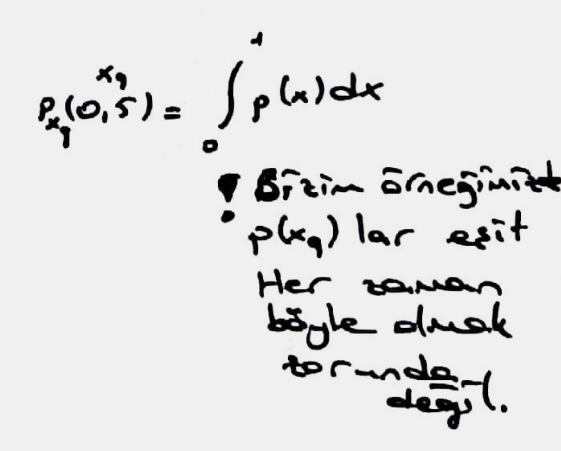 x_q
P_{x_q}(0,5) = ∫_0^1 p(x)dx
! Bizim örneğimizde
p(x_q) lar eşit
Her zaman
böyle olmak
zorunda
değil.